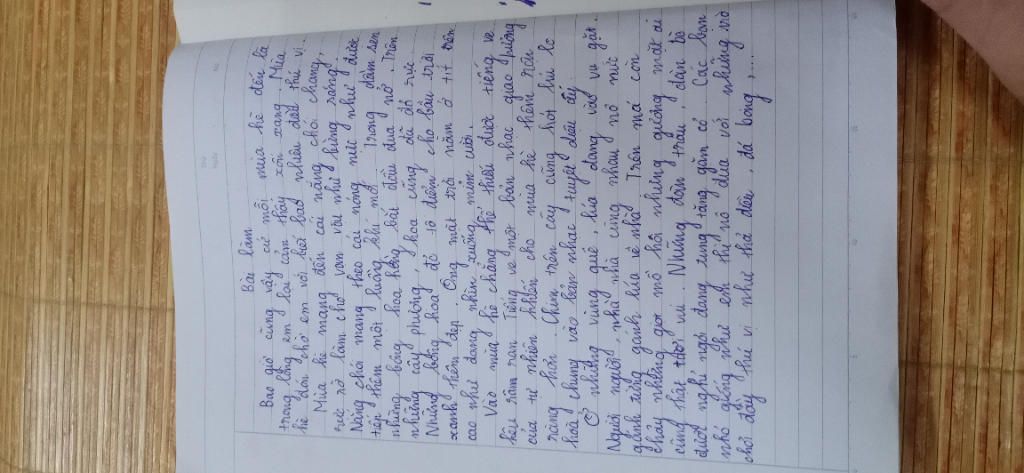 Bài làm
Bao giờ cũng vậy cứ mỗi mùa hè đến là
trong lòng em lại cảm thấy xốn xang. Mùa
hè đón chờ em với biết bao nhiêu điều thú vị.
Mùa hè mang đến cái nắng chói chang,
rực rỡ làm cho vạn vật như bừng sáng.
Nắng chói mang theo cái nóng nực như được
tiếp thêm một luồng khí mới. Trong đầm sen
những bông hoa hồng bắt đầu đua nở. Trên
những cây phượng, hoa cũng đã đỏ rực.
Những bông hoa đỏ tô điểm cho bầu trời
xanh thêm đẹp. Ông mặt trời nằm ở tít trên
cao như đang nhìn xuống mỉm cười.
Vào mùa hè chẳng thể thiếu được tiếng ve
kêu râm ran. Tiếng ve một bản nhạc giao hưởng
của tự nhiên khiến cho mùa hè thêm náo
ràng hơn. Chim trên cây cũng hót líu lo
hoà chung vào bản nhạc tuyệt diệu ấy.
Ở những vùng quê, lúa đang vào vụ gặt.
Người người, nhà nhà cùng nhau nô nức
gánh từng gánh lúa về nhà. Trên má còn
chảy những giọt mồ hôi nhưng gương mặt ai
cũng thật tươi vui. Những đàn trâu, đàn bò
được nghỉ ngơi đang tung tăng gặm cỏ. Các bạn
nhỏ giống như em thì nô đùa với những trò
chơi đầy thú vị như thả diều, đá bóng,...